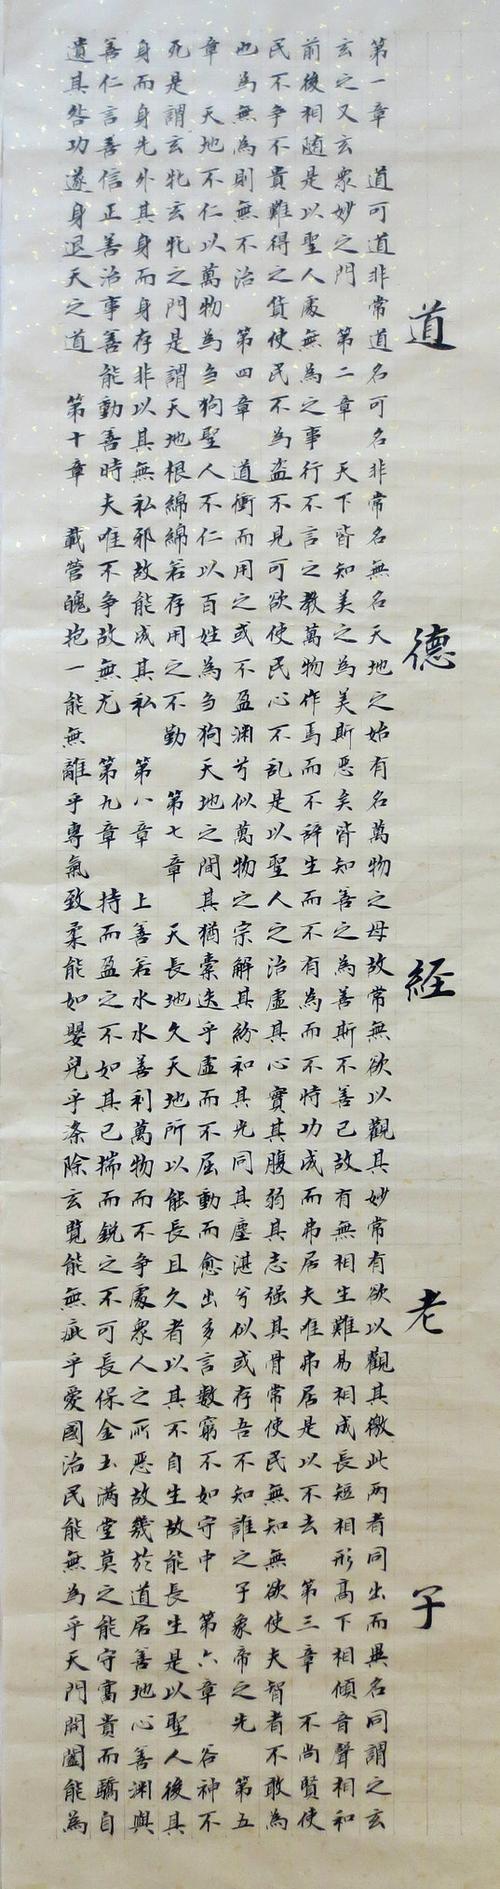 道德経老子
第一章 道可道非常道名可名非常名無名天地之始有名萬物之母故常無欲以觀其妙常有欲以觀其徼此两者同出而異名同謂之玄
玄之又玄衆妙之門 第二章 天下皆知美之為美斯恶矣皆知善之為善斯不善已故有無相生難易相成長短相形髙下相傾音聲相和
前後相随是以聖人處無為之事行不言之教萬物作焉而不辞生而不有為而不恃功成而弗居夫唯弗居是以不去 第三章 不尚賢使
民不争不貴難得之货使民不為盗不見可欲使民心不乱是以聖人之治虚其心實其腹弱其志强其骨常使民無知無欲使夫智者不敢為
也為無為則無不治 第四章 道衝而用之或不盈渊兮似萬物之宗解其紛和其光同其塵湛兮似或存吾不知誰之子象帝之先 第五
章 天地不仁以萬物為刍狗聖人不仁以百姓為刍狗天地之間其猶橐迭乎虚而不屈動而愈出多言數窮不如守中 第六章 谷神不
死是謂玄牝玄牝之門是謂天地根綿綿若存用之不勤 第七章 天長地久天地所以能長且久者以其不自生故能長生是以聖人後其
身而身先外其身而身存非以其無私邪故能成其私 第八章 上善若水水善利萬物而不争處衆人之所恶故幾於道居善地心善渊與
善仁言善信正善治事善能動善時夫唯不争故無尤 第九章 持而盈之不如其已揣而銳之不可長保金玉满堂莫之能守富貴而驕自
遺其咎功遂身退天之道 第十章 載營魄抱一能無離乎專氣致柔能如嬰兒乎滌除玄覧能無疵乎爱國治民能無為乎天門開闔能為